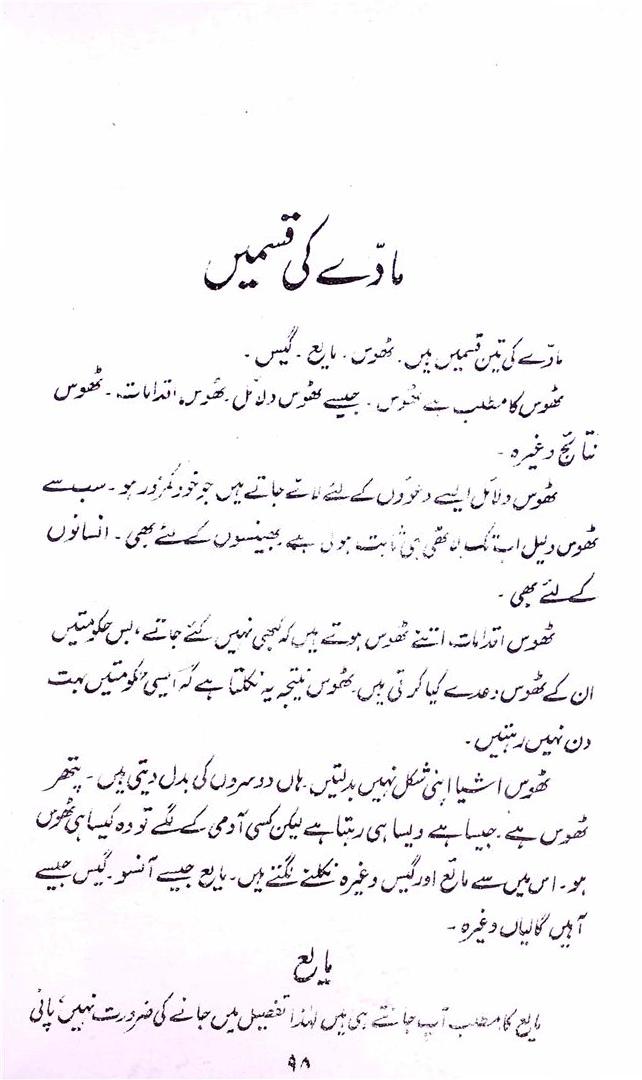 مادّے کی قسمیں
مادّے کی تین قسمیں ہیں۔ ٹھوس۔ مایع۔ گیس۔
ٹھوس کا مطلب ہے ٹھوس۔ جیسے ٹھوس دلائل۔ ٹھوس اقدامات۔ ٹھوس
نتائج وغیرہ۔
ٹھوس دلائل ایسے دعووں کے لئے لائے جاتے ہیں جو خود کمزور ہو۔ سب سے
ٹھوس دلیل اب تک لاٹھی ہی ثابت ہوئی ہے بھینسوں کے لئے بھی۔ انسانوں
کے لئے بھی۔
ٹھوس اقدامات اتنے ٹھوس ہوتے ہیں کہ کبھی نہیں کئے جاتے، بس حکومتیں
ان کے ٹھوس وعدے کیا کرتی ہیں۔ ٹھوس نتیجہ یہ نکلتا ہے کہ ایسی حکومتیں بہت
دن نہیں رہتیں۔
ٹھوس اشیا اپنی شکل نہیں بدلتیں۔ ہاں دوسروں کی بدل دیتی ہیں۔ پتھر
ٹھوس ہے۔ جیسا ہے ویسا ہی رہتا ہے لیکن کسی آدمی کے لگے تو وہ کیسا ہی ٹھوس
ہو۔ اس میں سے مائع اور گیس وغیرہ نکلنے لگتے ہیں۔ مایع جیسے آنسو۔ گیس جیسے
آہیں گالیاں وغیرہ۔
مایع
مایع کا مطلب آپ جانتے ہی ہیں لہٰذا تفصیل میں جانے کی ضرورت نہیں، پانی
۹۸